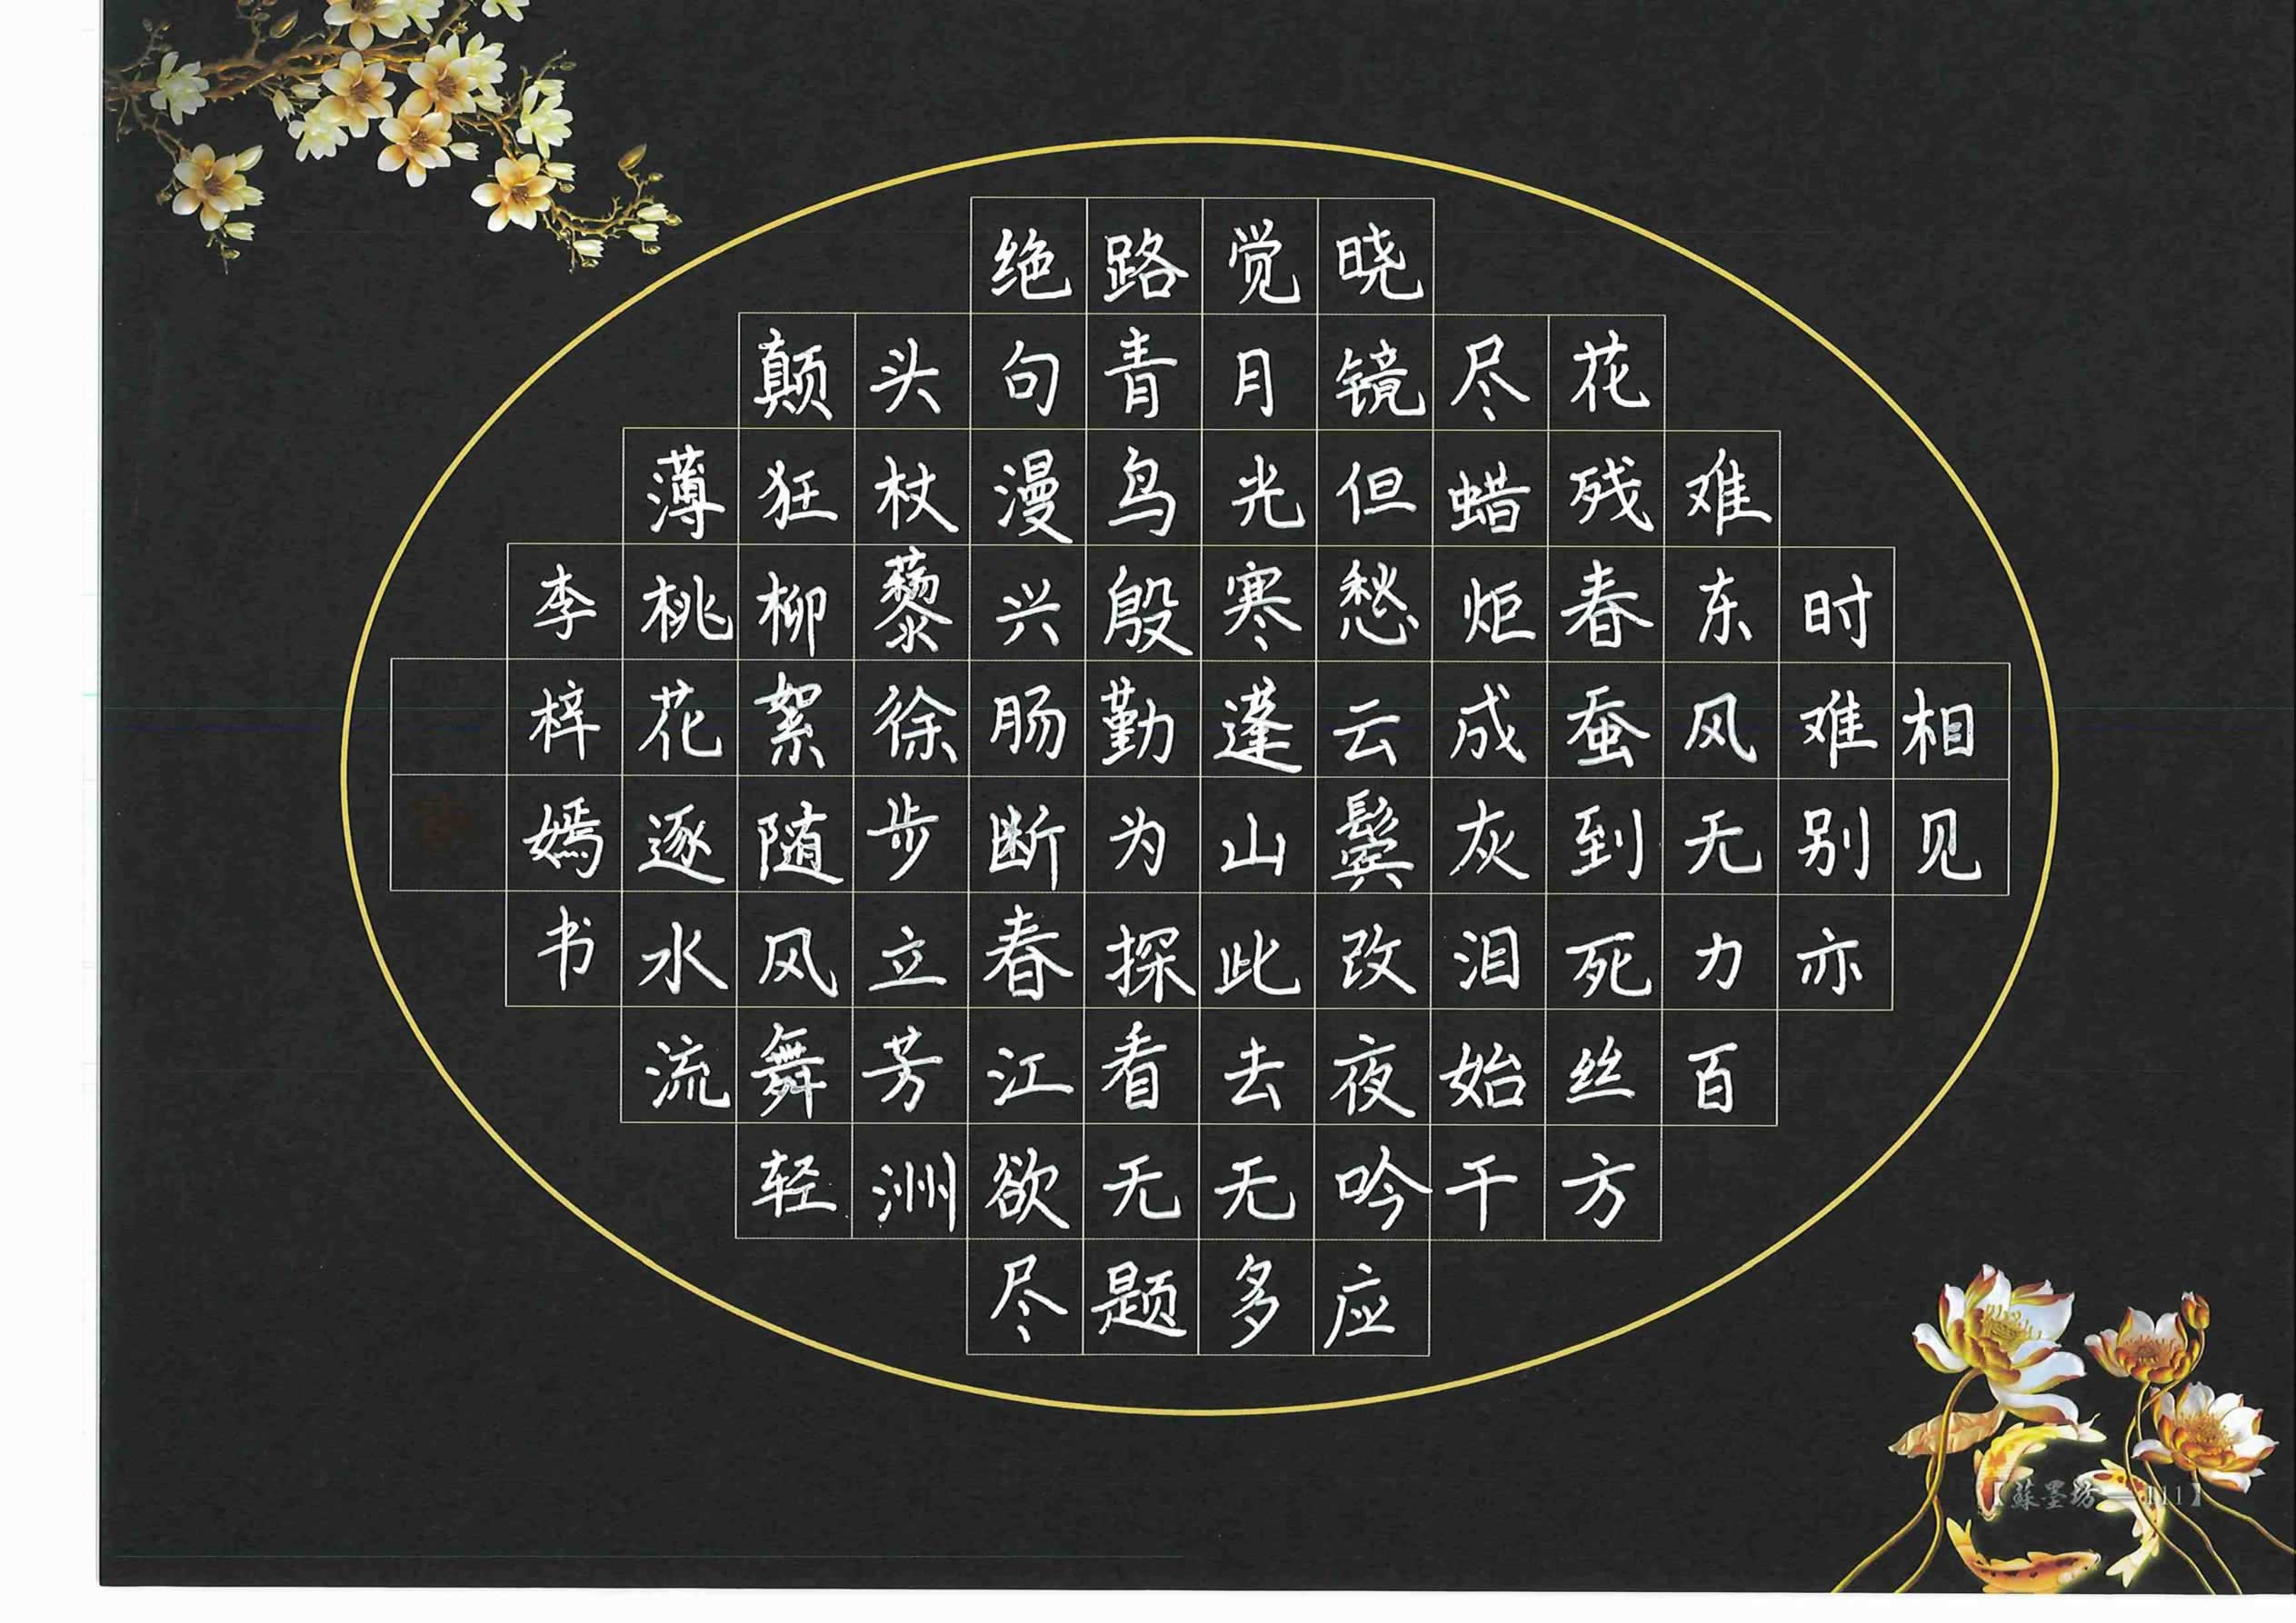 相见
时难别亦
难东风无力百
花残春蚕到死丝方
尽蜡炬成灰泪始干
晓镜但愁云鬓改夜吟应
觉月光寒蓬山此去无多
路青鸟殷勤为探看无题
绝句漫兴肠断春江欲尽
头杖藜徐步立芳洲
颠狂柳絮随风舞轻
薄桃花逐水流
李梓嫣书
【蘇墨坊—111】